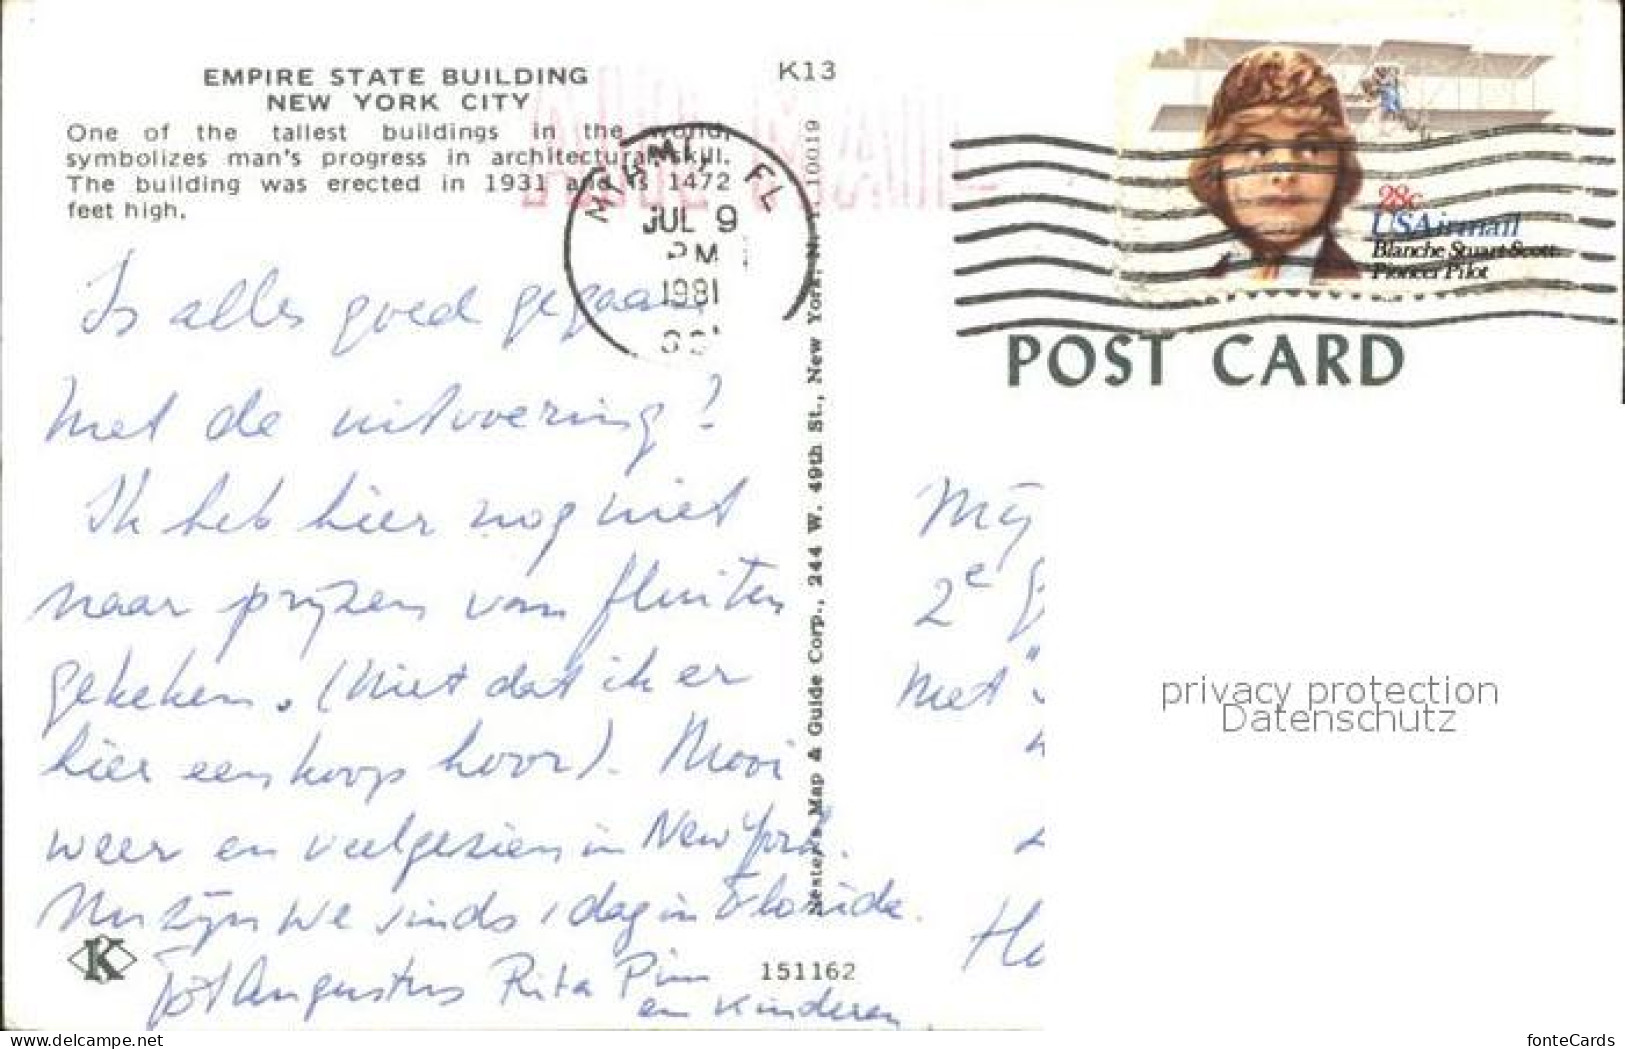 EMPIRE STATE BUILDING
NEW YORK CITY
One of the tallest buildings in the world,
symbolizes man's progress in architectural skill.
The building was erected in 1931 and is 1472
feet high.
K13
AIR MAIL
MIAMI, FL
JUL 9
PM
1981
28c
USAirmail
Blanche Stuart Scott
Pioneer Pilot
POST CARD
Nester's Map & Guide Corp., 244 W. 49th St., New York, N. Y. 10019
Is alles goed gegaan
met de uitvoering?
Ik heb hier nog niet
naar prijzen van fluiten
gekeken. (Niet dat ik er
hier een koop hoor). Mooi
weer en veel gezien in New York.
Nu zijn we sinds 1 dag in Florida.
Tot Augustus Rita Pim
en kinderen.
K
151162
Mij
2e
met
privacy protection
Datenschutz
www.delcampe.net
fonteCards